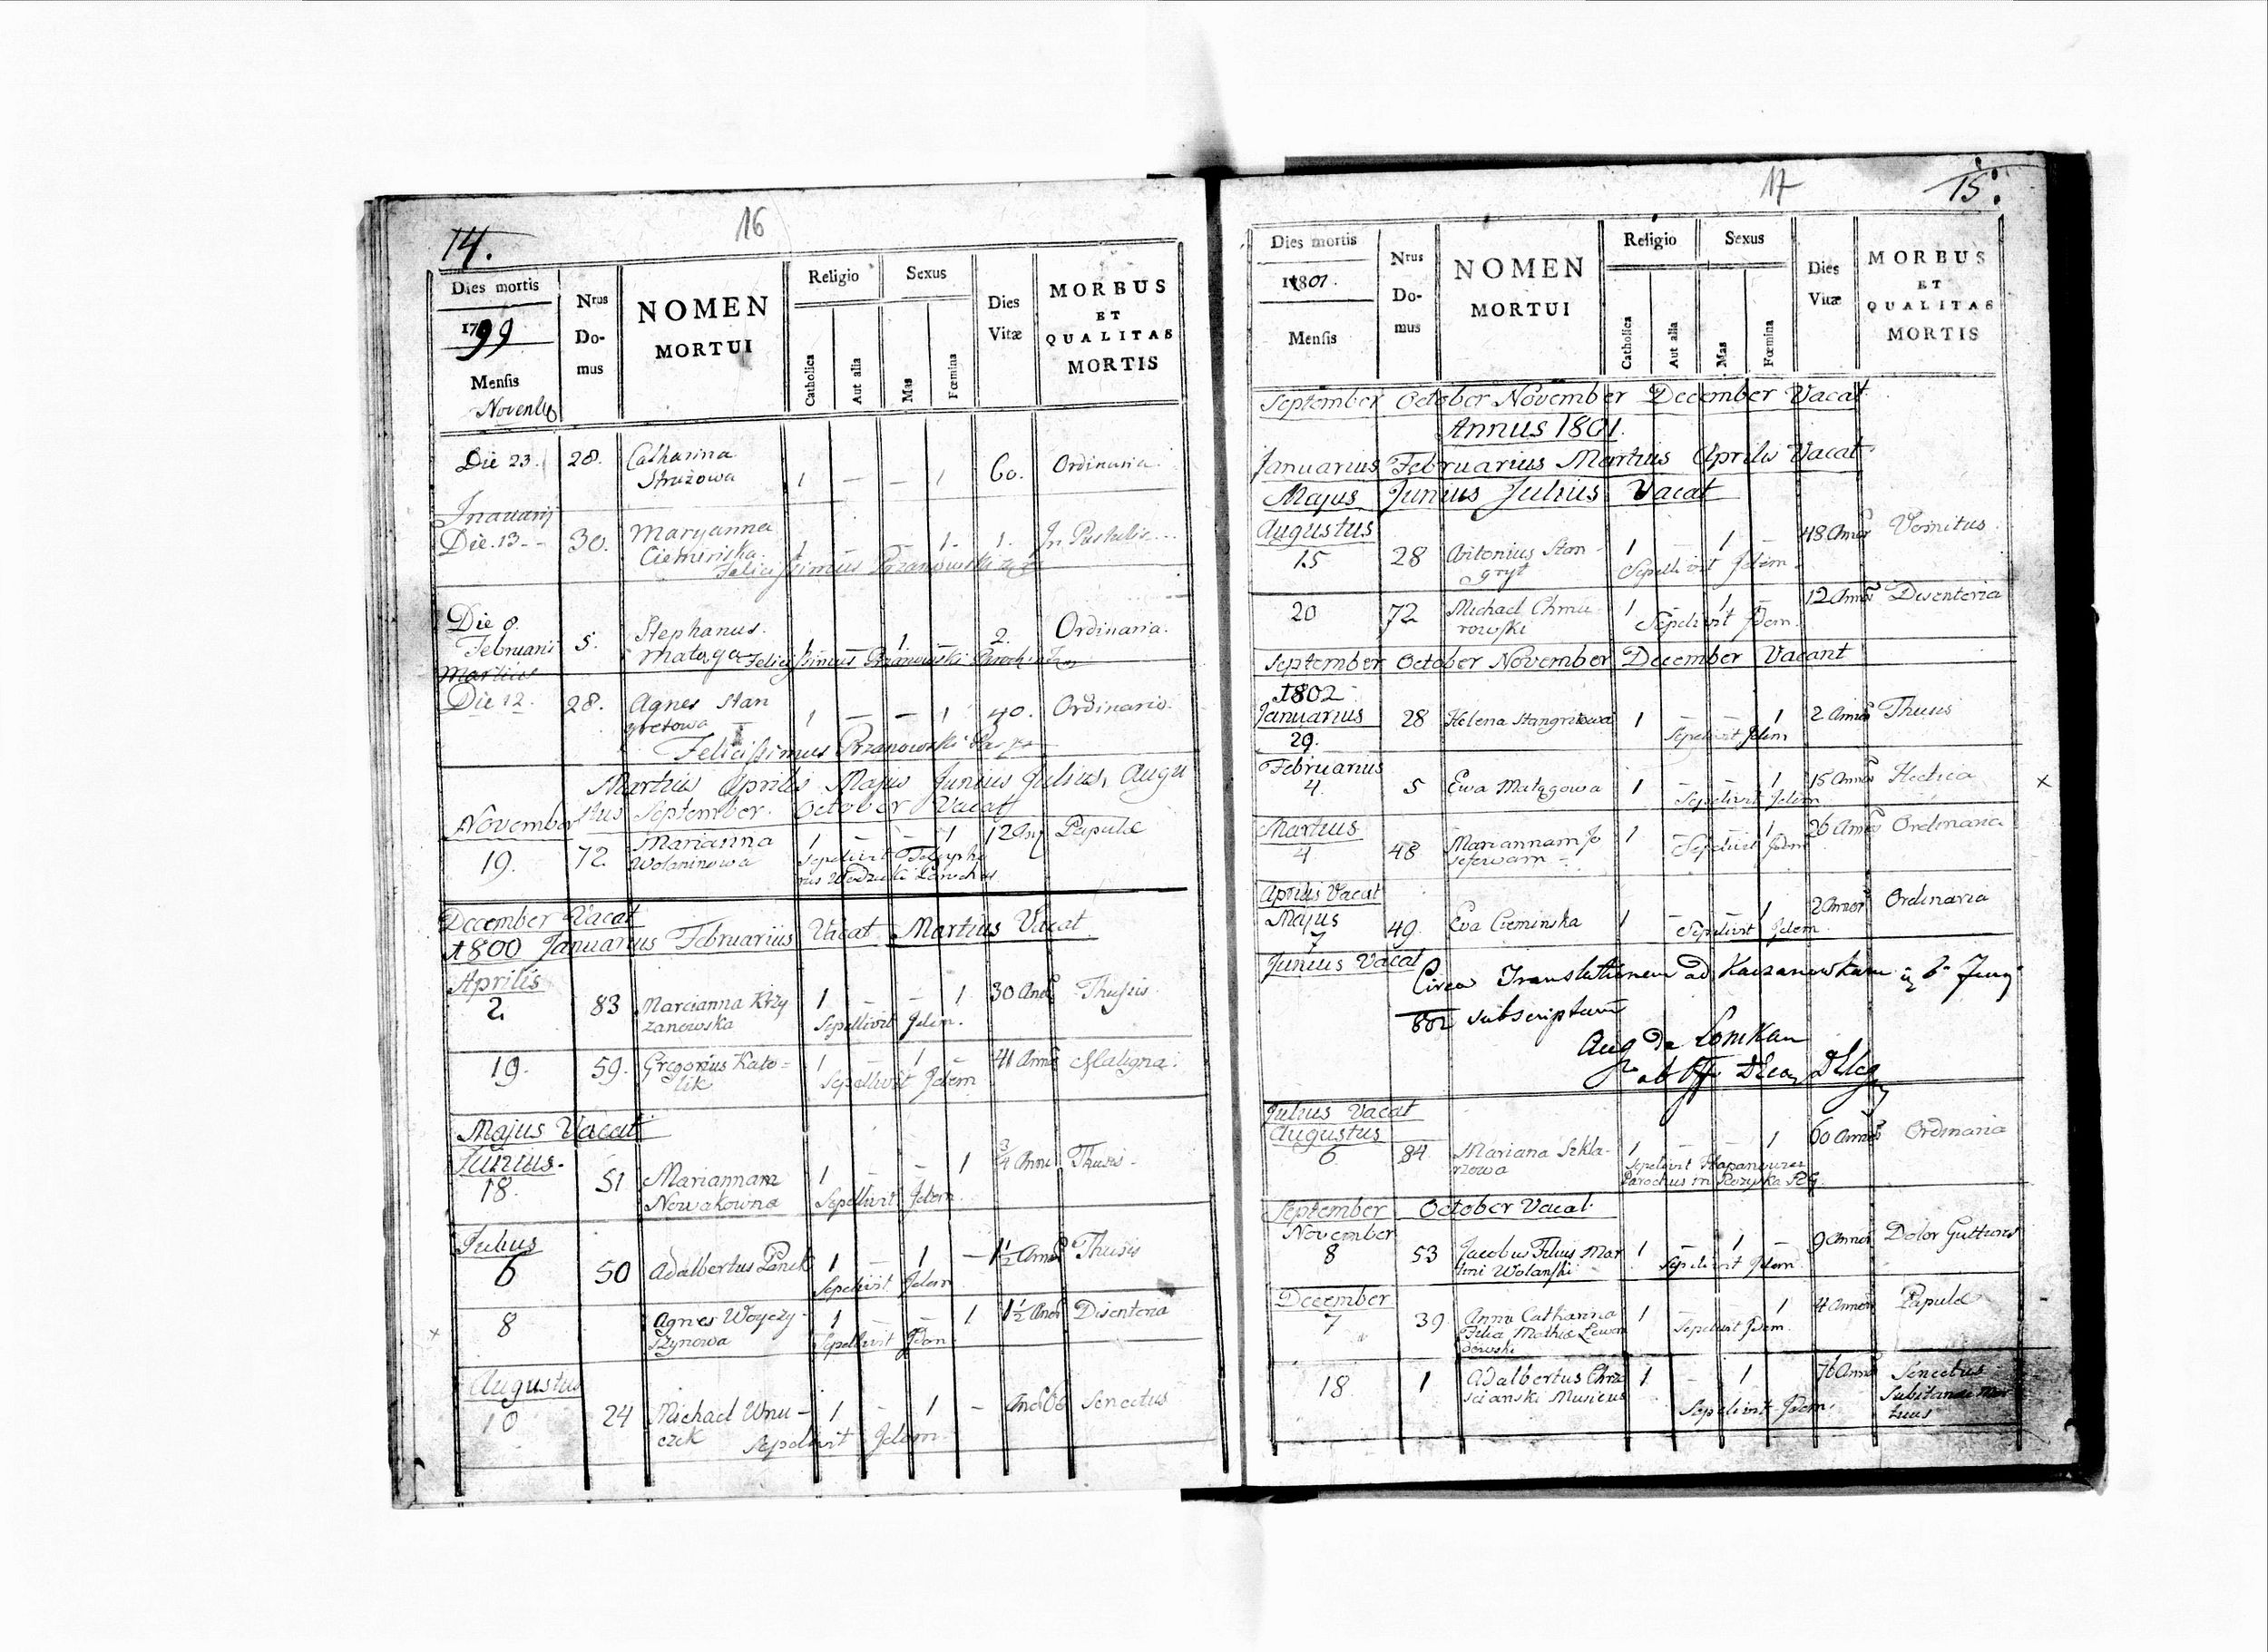 14.
16
Dies mortis
1799
Mensis
Novembr
Nrus Do- mus
NOMEN
MORTUI
Religio
Catholica
Aut alia
Sexus
Mas
Fœmina
Dies Vitæ
MORBUS
ET
QUALITAS
MORTIS
Die 23. 28. Catharina 60. Ordinaria.
Struzowa 1 — — 1
Die 13. 30. Maryanna 1. 1. In Pustulis
Cieminska. 1 —
Felicissimus Przanowski
Die 8. Stephanus. Ordinaria.
Februarii 5. Mataga 1 1 — 2.
Felicissimus Przanowski
Martius
Die 12. 28. Agnes Stan 1 — — 1 40. Ordinaria.
gretowa
Felicissimus Przanowski
Martius Aprilis Majus Junius Julius, Augu
stus September. October Vacat
November
19. 72. Marianna 1 — — 1 12 Papulæ
Wolaninowa Sepelivit
Parochus
December Vacat
1800 Januarius Februarius Vacat Martius Vacat
Aprilis
2. 83 Marcianna Krzy 1 — — 1 30 Thusis
zanowska Sepellivit Idem.
19. 59. Gregorius Kato- 1 — 1 — 41 Maligna.
lik Sepellivit Idem
Majus Vacat
Junius.
18. 51 Mariannam 1 — — 1 3/4 Anni Thusis
Nowakowna Sepellivit Idem.
Julius
6 50 Adalbertus Panek 1 — 1 — 1½ Thusis
Sepelivit Idem
8 Agnes Woyczy- 1 — — 1 1½ Disenteria
szynowa Sepellivit Idem
Augustus
10 24 Michael Wnu- 1 — 1 — 60 Senectus
czek Sepelivit Idem
17
15.
Dies mortis
1801.
Mensis
Nrus Do- mus
NOMEN
MORTUI
Religio
Catholica
Aut alia
Sexus
Mas
Fœmina
Dies Vitæ
MORBUS
ET
QUALITAS
MORTIS
September October November December Vacat
Annus 1801.
Januarius Februarius Martius Aprilis Vacat
Majus Junius Julius Vacat
Augustus
15 28 Antonius Stan- 1 — 1 48 Vomitus
gryt Sepellivit Idem.
20 72 Michael Chmu- 1 — 1 — 12 Disenteria
rowski Sepelivit Idem.
September October November December Vacant
1802
Januarius
29. 28 Helena Stangretowa 1 — — 1 2 Thusis
Sepelivit Idem
Februarius
4. 5 Ewa Matągowa 1 — — 1 15 Hectica
Sepelivit Idem
Martius
4 48 Mariannam Jo 1 1 26 Ordinaria
sefowam Sepelivit Idem
Aprilis Vacat
Majus
7 49. Eva Cieminska 1 — — 1 2 Ordinaria
Sepelivit Idem
Junius Vacat
Circa Translationem ad
802 subscriptum
Julius Vacat
Augustus
6 84 Mariana Szkla- 1 — — 1 60 Ordinaria
rzowa Sepelivit
Parochus in
September October Vacat.
November
8 53 Jacobus Filius Mar 1 — 1 — 9 Dolor Gutturis
tini Wolanski Sepelivit Idem
December
7 39 Anna Catharina 1 1 4 Papulæ
Filia Mathiæ Lewan Sepelivit Idem.
dowski
18 1 Adalbertus Chrza 1 — 1 76 Senectus
scianski Musicus Subitanea Mor
Sepelivit Idem. tuus